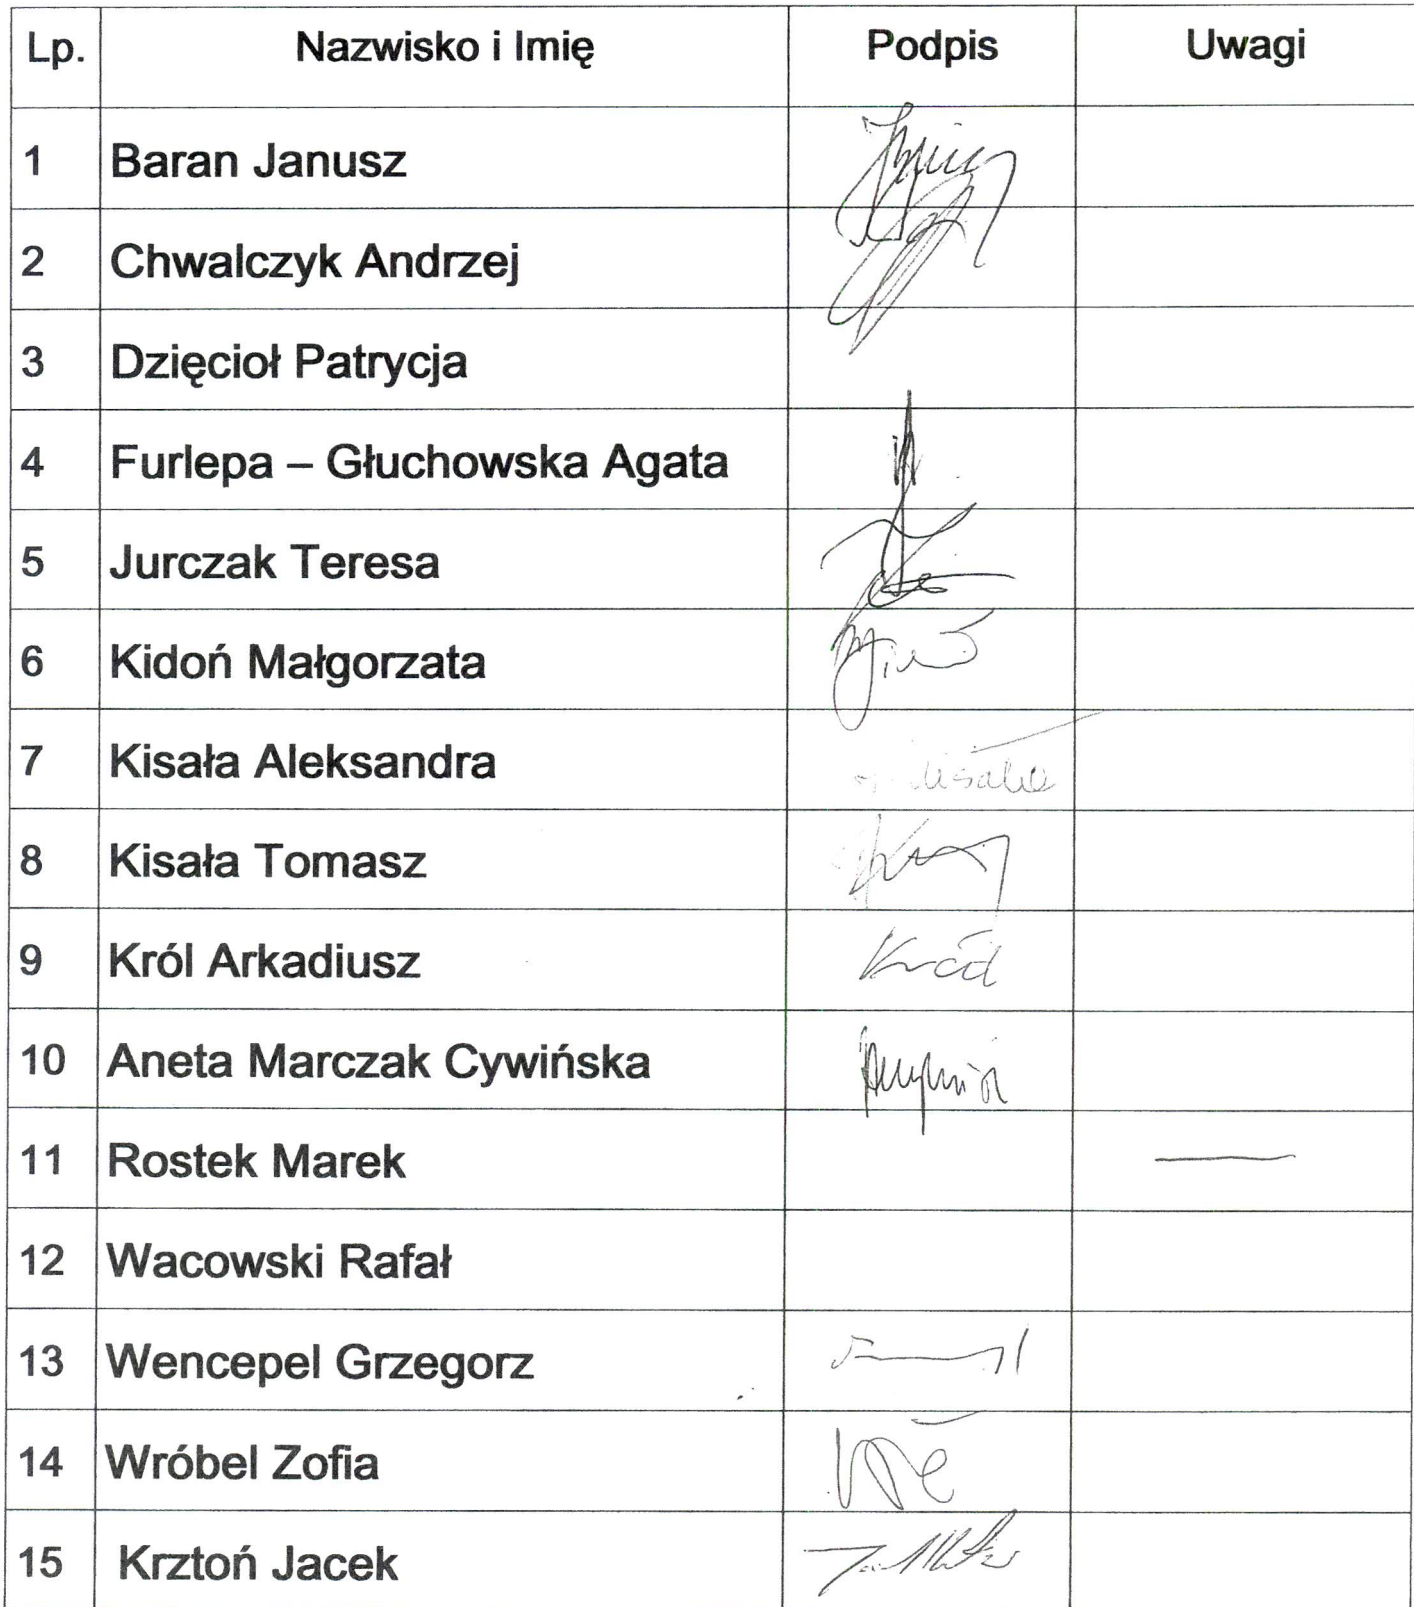 Lp. Nazwisko i Imię Podpis Uwagi
1 Baran Janusz
2 Chwalczyk Andrzej
3 Dzięcioł Patrycja
4 Furlepa – Głuchowska Agata
5 Jurczak Teresa
6 Kidoń Małgorzata
7 Kisała Aleksandra
8 Kisała Tomasz
9 Król Arkadiusz Król
10 Aneta Marczak Cywińska
11 Rostek Marek —
12 Wacowski Rafał
13 Wencepel Grzegorz
14 Wróbel Zofia
15 Krztoń Jacek